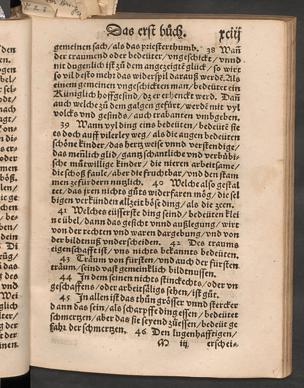 Das erst büch. xciij
gemeinen sach / als das priesterthumb. 38 Wañ
der traumend oder bedeüter / vngeschickt / vnnd
nit dugenlich ist zů dem angezeigtẽ glück / so wirt
so vil desto meht das widerspil darauß werdẽ. Als
einem gemeinen vngeschicktenman / bedeütet ein
Küniglich hoffgesind / dz er erhenckt werd. Dañ
auch welche zů dem galgen gefürt / werdẽ mit vyl
volcks vnd gesinds / auch trabanten vmbgeben.
39 Wann vyl ding eins bedeüten / bedeütẽ sie
es doch auff vilerley weg / als die augen bedeüten
schöne kinder / das hertz weise vnnd verstendige /
das menlich glid / gantz schantliche vnd
sche mütwillige kinder / die nieren arbeitsame /
die schoß faule / aber die fruchtbar / vnd den stam
men zefürdern nutzlich. 40 Welche also gestal
tet / das jren nichts gůts widerfaren mög / die sel
bigen verkünden allzeit böse ding / als die
41 Welches eüsserste ding seind / bedeüten klei
ne übel / dann das gesicht vnd außlegung / wirt
von der rechten vnd waren dargebung / vnd von
der bildnuß vnderscheiden. 42 Des traums
eigenschafft ist / vns nichts bekannts bedeüten.
43 Traum von fürsten / vnd auch der fürsten
traum / seind vast gemeinklich bildnussen.
44 In dem seinen nichts / oder vn
geschaffens / oder arbeitsäligs sehen / ist gůt.
45 In allen ist das thůn grösser vnnd stercker
dann das sein / als scharpffe ding essen / bedeütet
schmertzen / aber das sie seyend züessen / bedeüt ge
fahr der schmertzen. 46 Den lugenhafftigen /
M iij erschei-